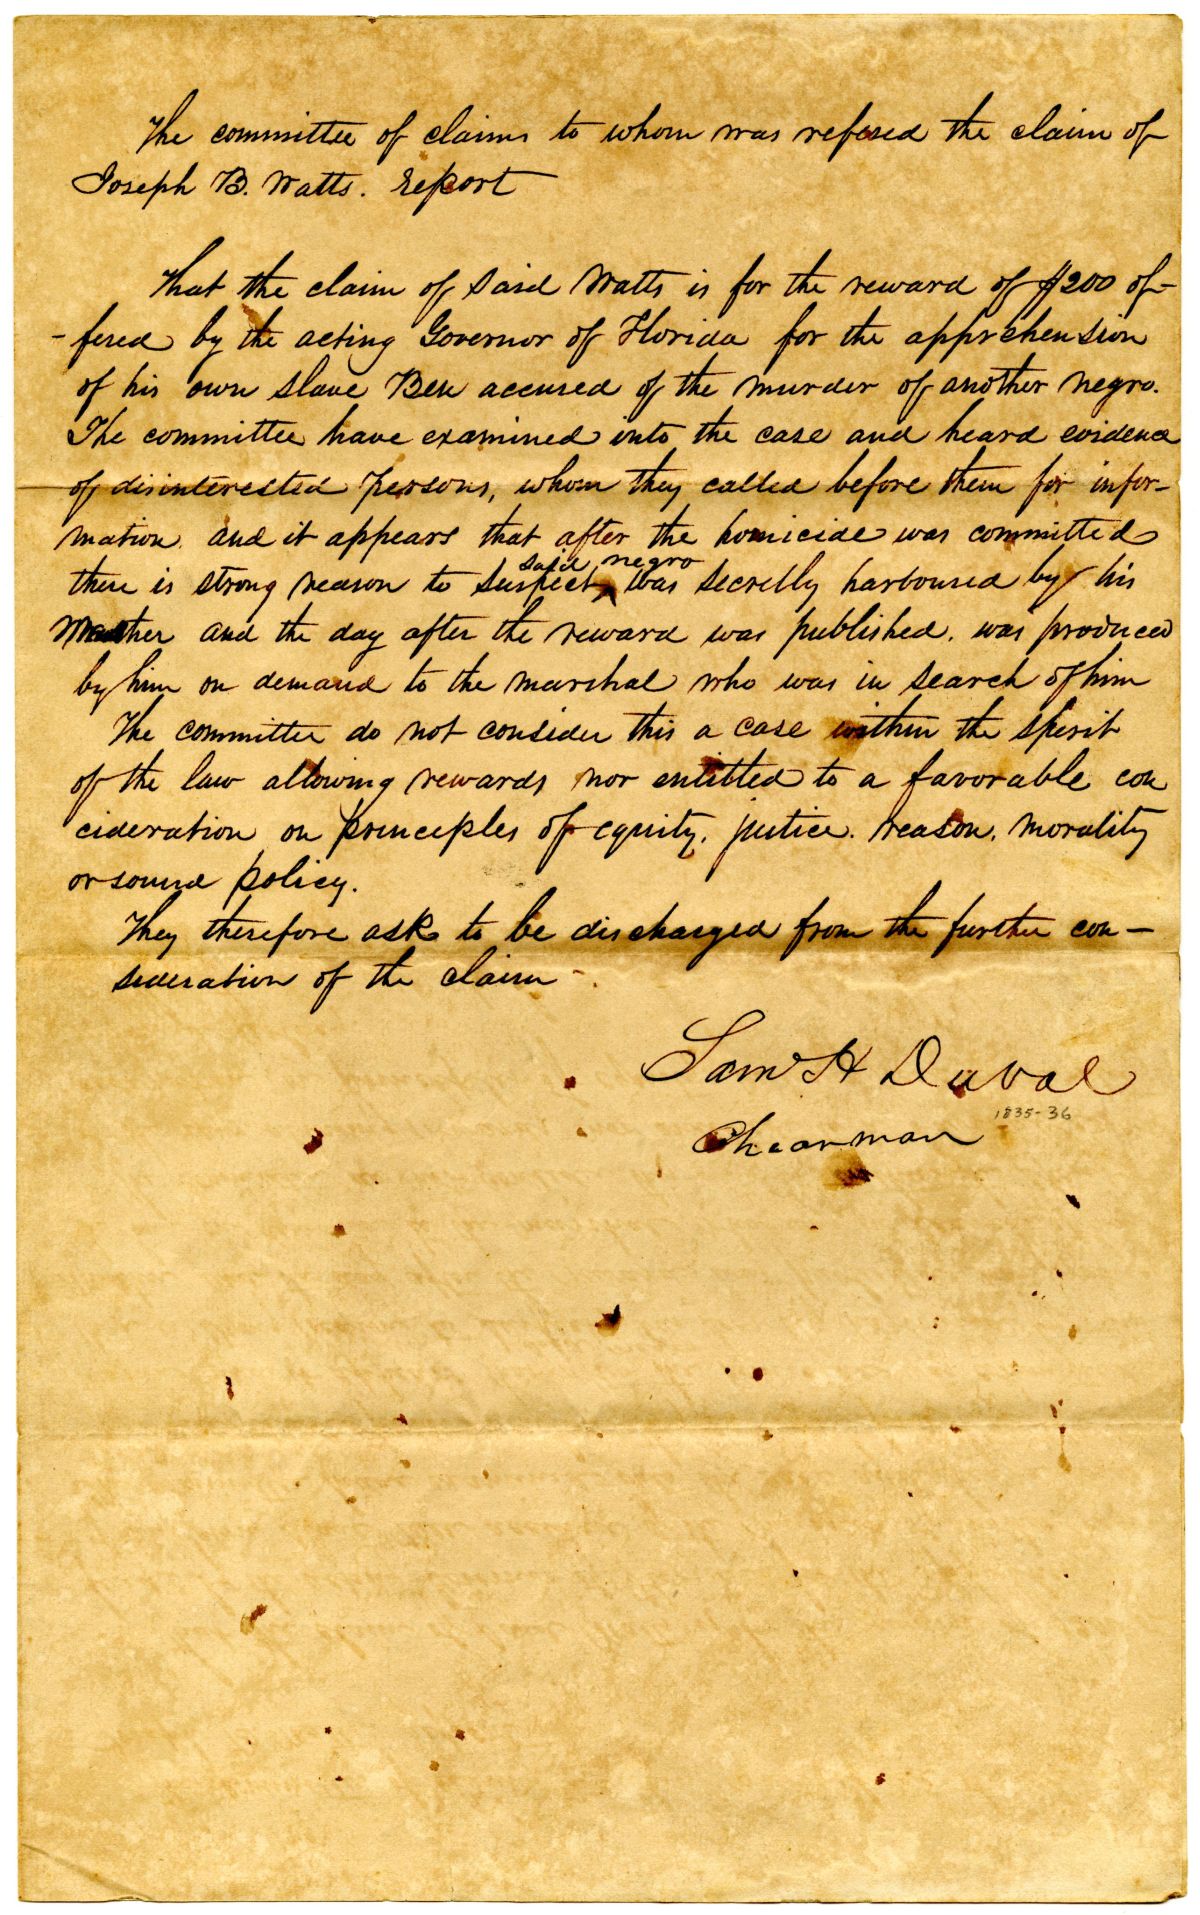 The committee of claims to whom was refered the claim of
Joseph B. Watts. Report
That the claim of said Watts is for the reward of $200 of-
-fered by the acting Governor of Florida for the apprehension
of his own slave Ben accused of the murder of another negro.
The committee have examined into the case and heard evidence
of disinterested persons, whom they called before them for infor-
mation. and it appears that after the homicide was committed
said negro
there is strong reason to suspect ^ was secretly harboured by his
Master and the day after the reward was published. was produced
by him on demand to the marshal who was in search of him
The committee do not consider this a case within the spirit
of the law allowing rewards nor entitled to a favorable con
cideration on principles of equity, justice. reason. morality
or sound policy.
They therefore ask to be discharged from the further con-
sideration of the claim -.
Saml H Duval
1835-36
Chearman